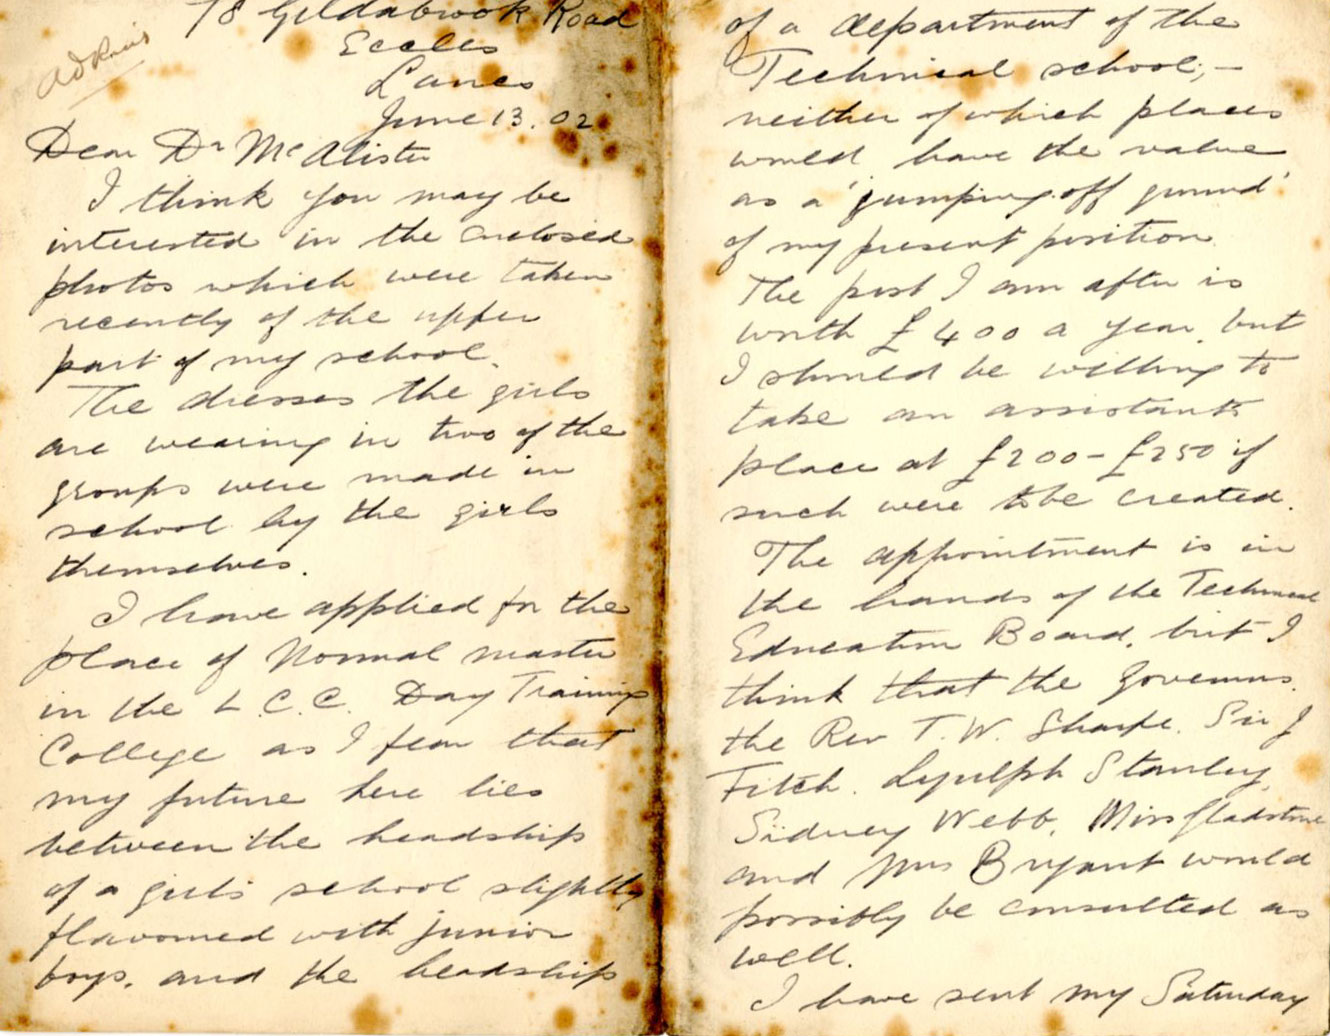 Adkins
78 Gildabrook Road
Eccles
Lancs
June 13. 02
Dear Dr McAlister
I think you may be
interested in the enclosed
photos which were taken
recently of the upper
part of my school.
The dresses the girls
are wearing in two of the
groups were made in
school by the girls
themselves.
I have applied for the
place of Normal master
in the L.C.C. Day Training
College as I fear that
my future here lies
between the headship
of a girls' school slightly
flavoured with junior
boys, and the headship
of a department of the
Technical school; —
neither of which places
would have the value
as a 'jumping off ground'
of my present position.
The post I am after is
worth £400 a year, but
I should be willing to
take an assistants
place at £200 - £250 if
such were to be created.
The appointment is in
the hands of the Technical
Education Board, but I
think that the Governors,
the Rev T. W. Sharpe, Sir J
Fitch, Lyulph Stanley,
Sidney Webb, Miss Gladstone
and Mrs Bryant would
possibly be consulted as
well.
I have sent my Saturday